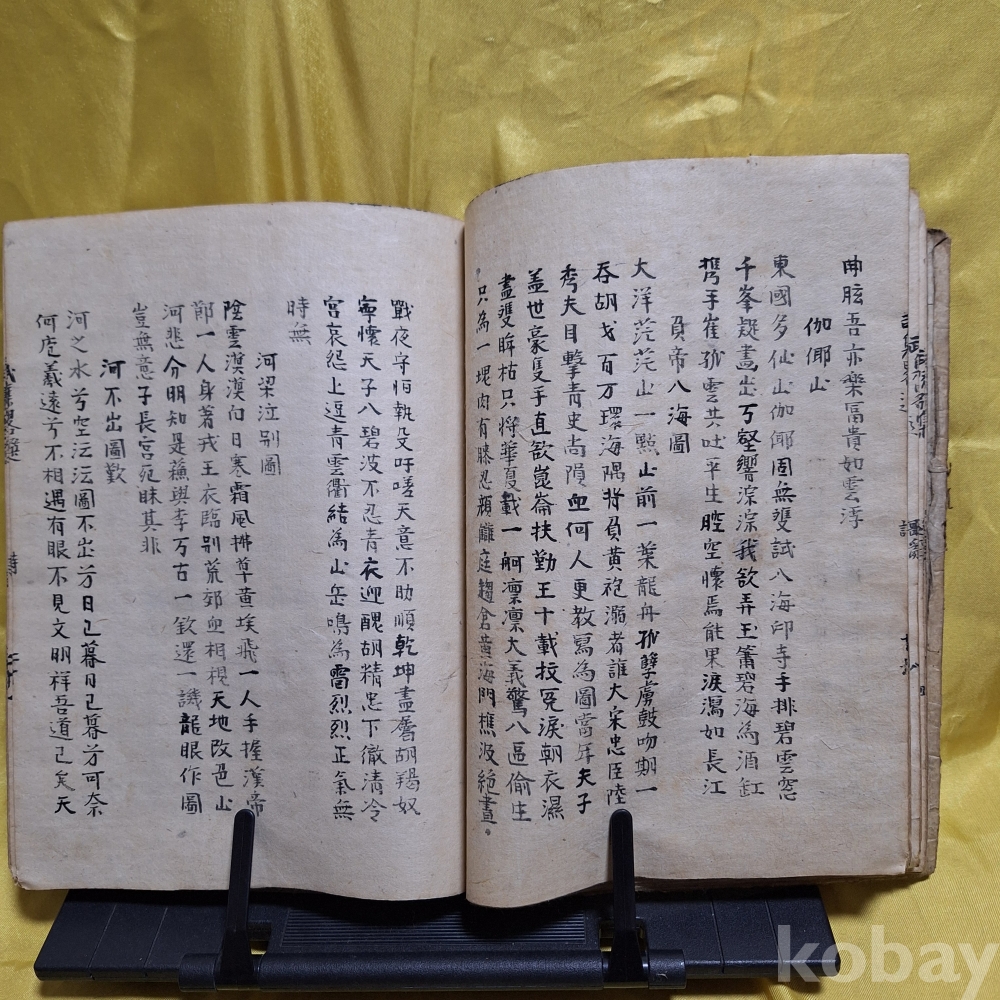 曲肱吾亦樂富貴如雲浮
伽倻山
東國多仙山伽倻固無雙試入海印寺手排碧雲窓
千峯疑畵出万壑響淙淙我欲弄玉簫碧海為酒缸
携手崔孤雲共吐平生腔空懷焉能果淚灑如長江
負帝入海圖
大洋茫茫山一點山前一葉龍舟孤孽虜鼓吻期一
吞胡戈百万環海隅背負黃袍溺者誰大宋忠臣陸
秀夫目擊靑史尙隕血何人更敎寫為圖當年夫子
盖世豪隻手直欲崑崙扶勤王十載抆寃淚朝衣濕
盡雙眸枯只將華夏載一舸凛凛大義驚八區偷生
只為一塊肉有滕忍頰讎庭趨倉黃海門樵汲絶晝
戰夜守怕執殳吁嗟天意不助順乾坤盡屬胡羯奴
寧懷天子入碧波不忍靑衣迎醜胡精忠下徹淸冷
宮哀怨上逗靑雲衢結為山岳鳴為雷烈烈正氣無
時無
河梁泣别圖
陰雲漠漠白日寒霜風拂草黃埃飛一人手握漢帝
節一人身著戎王衣臨别荒郊血相視天地改色山
河悲分明知是蘓與李万古一欽還一譏龍眼作圖
豈無意子長宮死昧其非
河不出圖歎
河之水兮空沄沄圖不出兮日已暮日已暮兮可奈
何庖羲遠兮不相遇有眼不見文明祥吾道已矣天
kobay